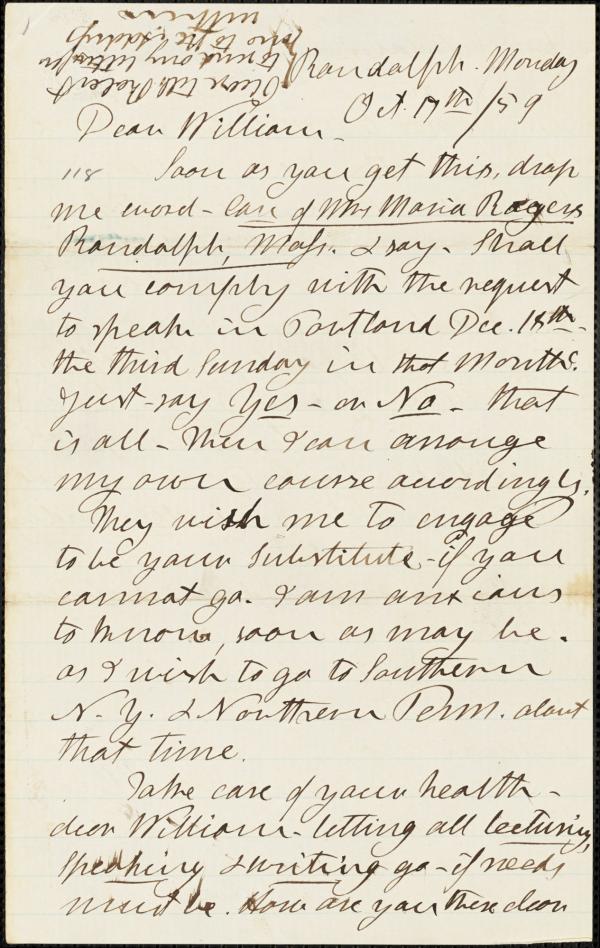 Please tell Robert
to send any letters for
me to the address
within
Randolph. Monday
Oct. 17th/59
Dear William -
118 Soon as you get this, drop
me word - Care of Mrs Maria Rogers
Randolph, Mass. & say - Shall
you comply with the request
to speak in Portland Dec. 18th -
the third Sunday in that Month.
Just say Yes - or No - that
is all - Then I can arrange
my own course accordingly.
They wish me to engage
to be your substitute - if you
cannot go. I am anxious
to know, soon as may be.
as I wish to go to Southern
N. Y. & Northern Penn. about
that time.
Take care of your health -
dear William - letting all lecturing,
speaking & writing go - if needs
must be. How are you these dear